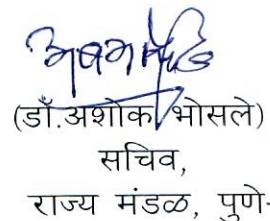 (डॉ.अशोक भोसले)
सचिव,
राज्य मंडळ, पुणे-